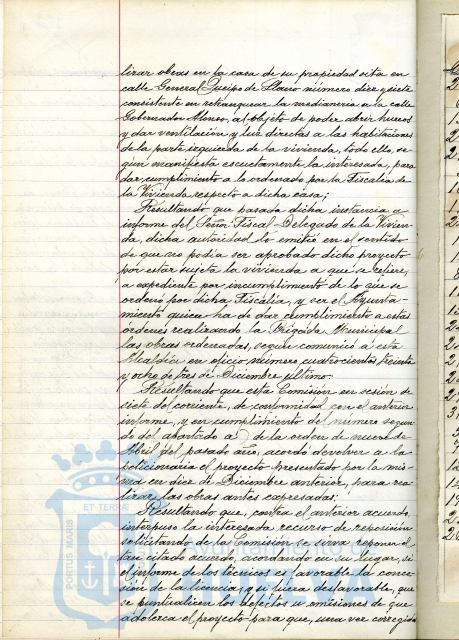 lizar obras en la casa de su propiedad sita en
calle General Queipo de Llano número diez y siete
consistente en retranquear la medianería a la calle
Gobernador Alonso, al objeto de poder abrir huecos
y dar ventilación y luz directas a las habitaciones
de la parte izquierda de la vivienda, todo ello, se-
gún manifiesta escuetamente la interesada, para
dar cumplimiento a lo ordenado por la Fiscalía de
la Vivienda respecto a dicha casa;
Resultando que pasada dicha instancia a
informe del Señor Fiscal Delegado de la Vivien-
da, dicha autoridad lo emitió en el sentido
de que no podía ser aprobado dicho proyecto
por estar sujeta la vivienda a que se refiere,
a expediente por incumplimiento de lo que se
ordenó por dicha Fiscalía, y ser el Ayunta-
miento quien ha de dar cumplimiento a estas
órdenes realizando la Brigada Municipal
las obras ordenadas, según comunicó a esta
Alcaldía en oficio número cuatrocientos treinta
y ocho de tres de Diciembre último.
Resultando que esta Comisión en sesión de
siete del corriente, de conformidad con el anterior
informe, y en cumplimiento del número segun-
do del apartado a) de la orden de nueve de
Abril del pasado año, acordó devolver a la
peticionaria el proyecto presentado por la mis-
ma en diez de Diciembre anterior, para rea-
lizar las obras antes expresadas;
Resultando que, contra el anterior acuerdo
interpuso la interesada recurso de reposición
solicitando de la Comisión se sirva reponer el
tan citado acuerdo, acordando en su lugar, si
el informe de los técnicos es favorable la conce-
sión de la licencia, y si fuera desfavorable, que
se puntualicen los defectos u omisiones de que
adolezca el proyecto para que, una vez corregido
ET TERRA
PORTUS MARIS
Ayuntamiento de